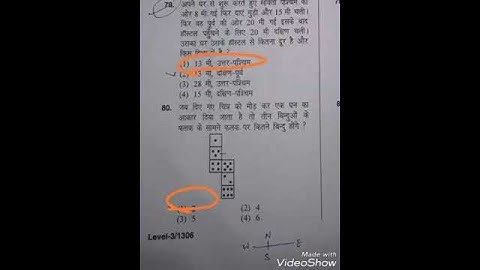 79. अपने घर से शुरू करते हुए सविता पश्चिम की
ओर 8 मी गई फिर दाएं मुड़ी और 15 मी चली।
फिर वह पूर्व की ओर 20 मी गई इसके बाद
हॉस्टल पहुँचने के लिए 20 मी दक्षिण चली।
उसका घर उसके हॉस्टल से कितना दूर है और
किस दिशा में है ?
(1) 13 मी, उत्तर-पश्चिम
(2) 13 मी, दक्षिण-पूर्व
(3) 28 मी, उत्तर-पश्चिम
(4) 15 मी, दक्षिण-पश्चिम
80. जब दिए गए चित्र को मोड़ कर एक घन का
आकार दिया जाता है तो तीन बिन्दुओं के
फलक के सामने फलक पर कितने बिन्दु होंगे ?
(2) 4
(3) 5
(4) 6
Level-3/1306
N
W E
S
Made with
VideoShow